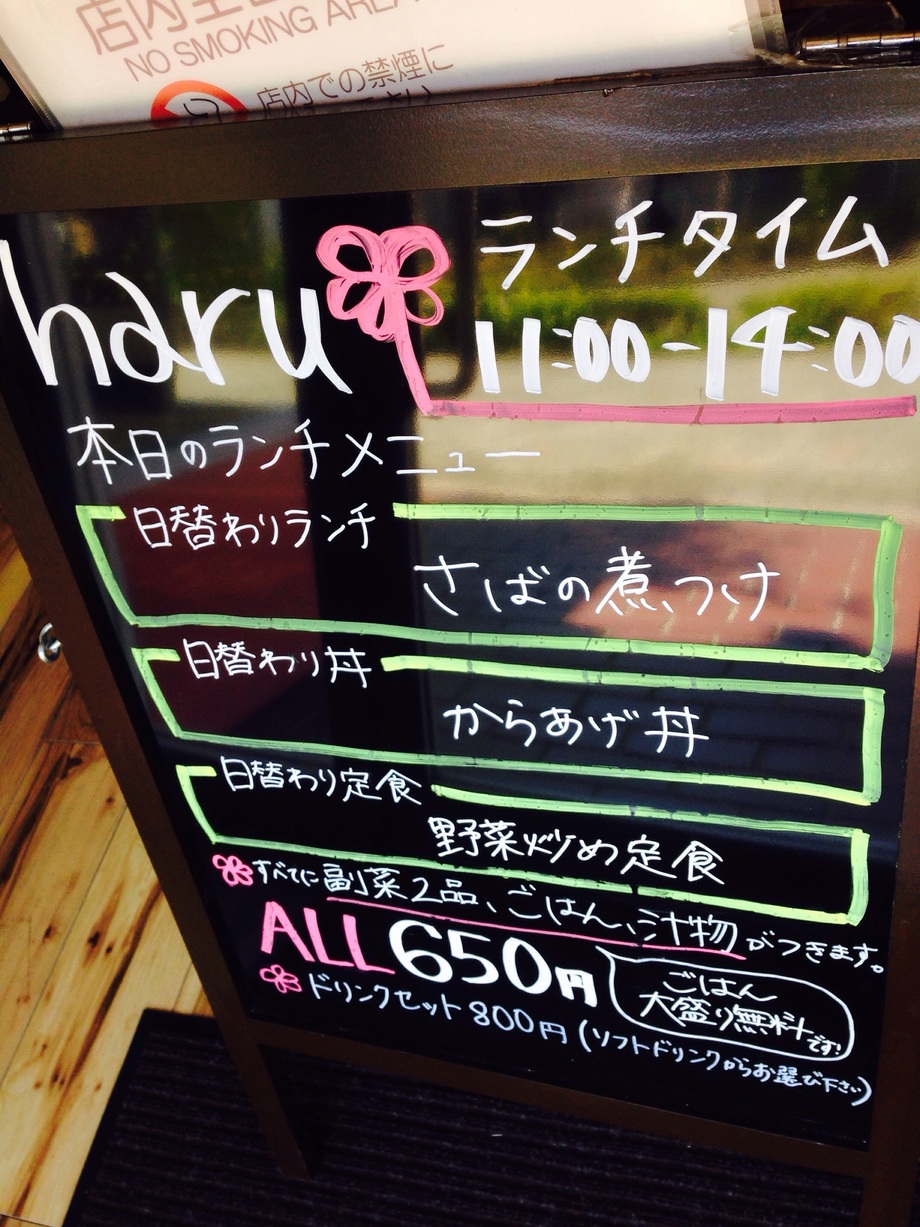 NO SMOKING AREA
店内での禁煙に
haru
ランチタイム
11:00-14:00
本日のランチメニュー
日替わりランチ
さばの煮つけ
日替わり丼
からあげ丼
日替わり定食
野菜炒め定食
すべてに副菜2品、ごはん、汁物がつきます。
ALL650円
ごはん
大盛り無料です!
ドリンクセット800円(ソフトドリンクからお選び下さい)